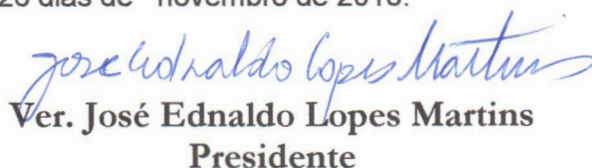 dias de novembro de 2018.
José Ednaldo Lopes Martins
Ver. José Ednaldo Lopes Martins
Presidente